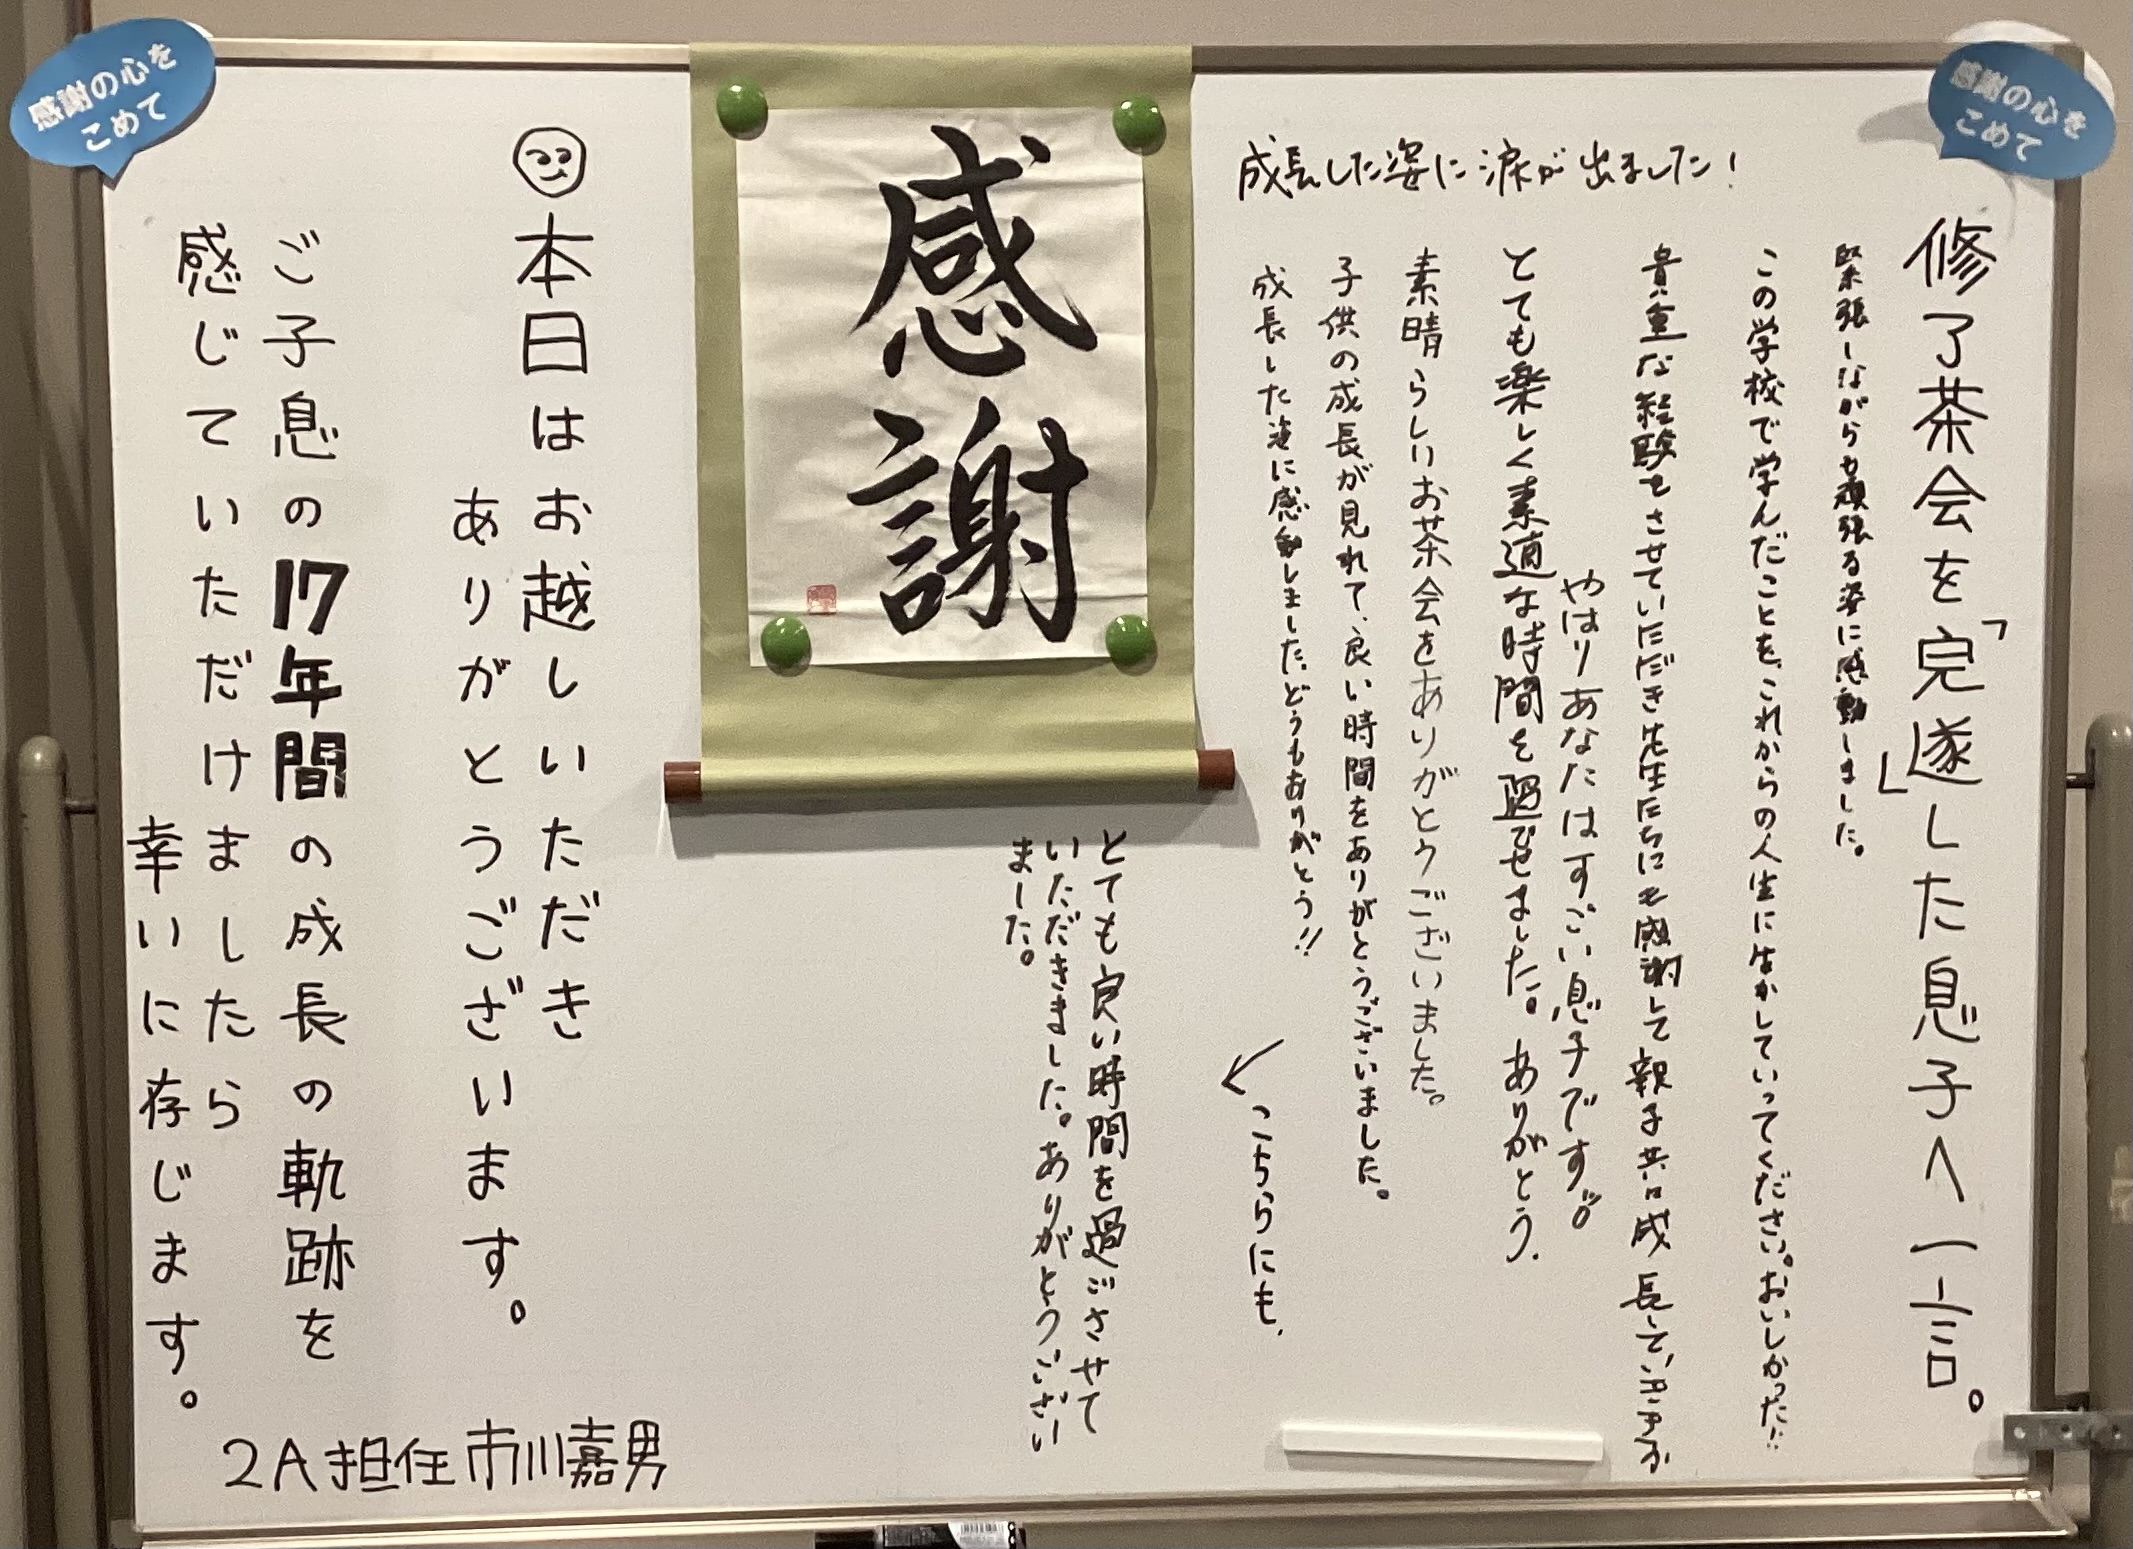 感謝の心を
こめて
修了茶会を「完遂」した息子へ一言。
成長した姿に涙が出ました！
緊張しながらも頑張る姿に感動しました。
この学校で学んだことを、これからの人生に生かしていってください。おいしかった!!
貴重な経験をさせていただき先生たちにも感謝して親子共に成長して、
やはりあなたはすごい息子です。
とても楽しく素適な時間を過ごせました。ありがとう。
素晴らしいお茶会をありがとうございました。
子供の成長が見れて、良い時間をありがとうございました。
成長した姿に感動しました。どうもありがとう!!
←こちらにも、
とても良い時間を過ごさせて
いただきました。ありがとうござい
ました。
感謝
本日はお越しいただき
ありがとうございます。
ご子息の17年間の成長の軌跡を
感じていただけましたら
幸いに存じます。
2A担任 市川嘉男
感謝の心を
こめて